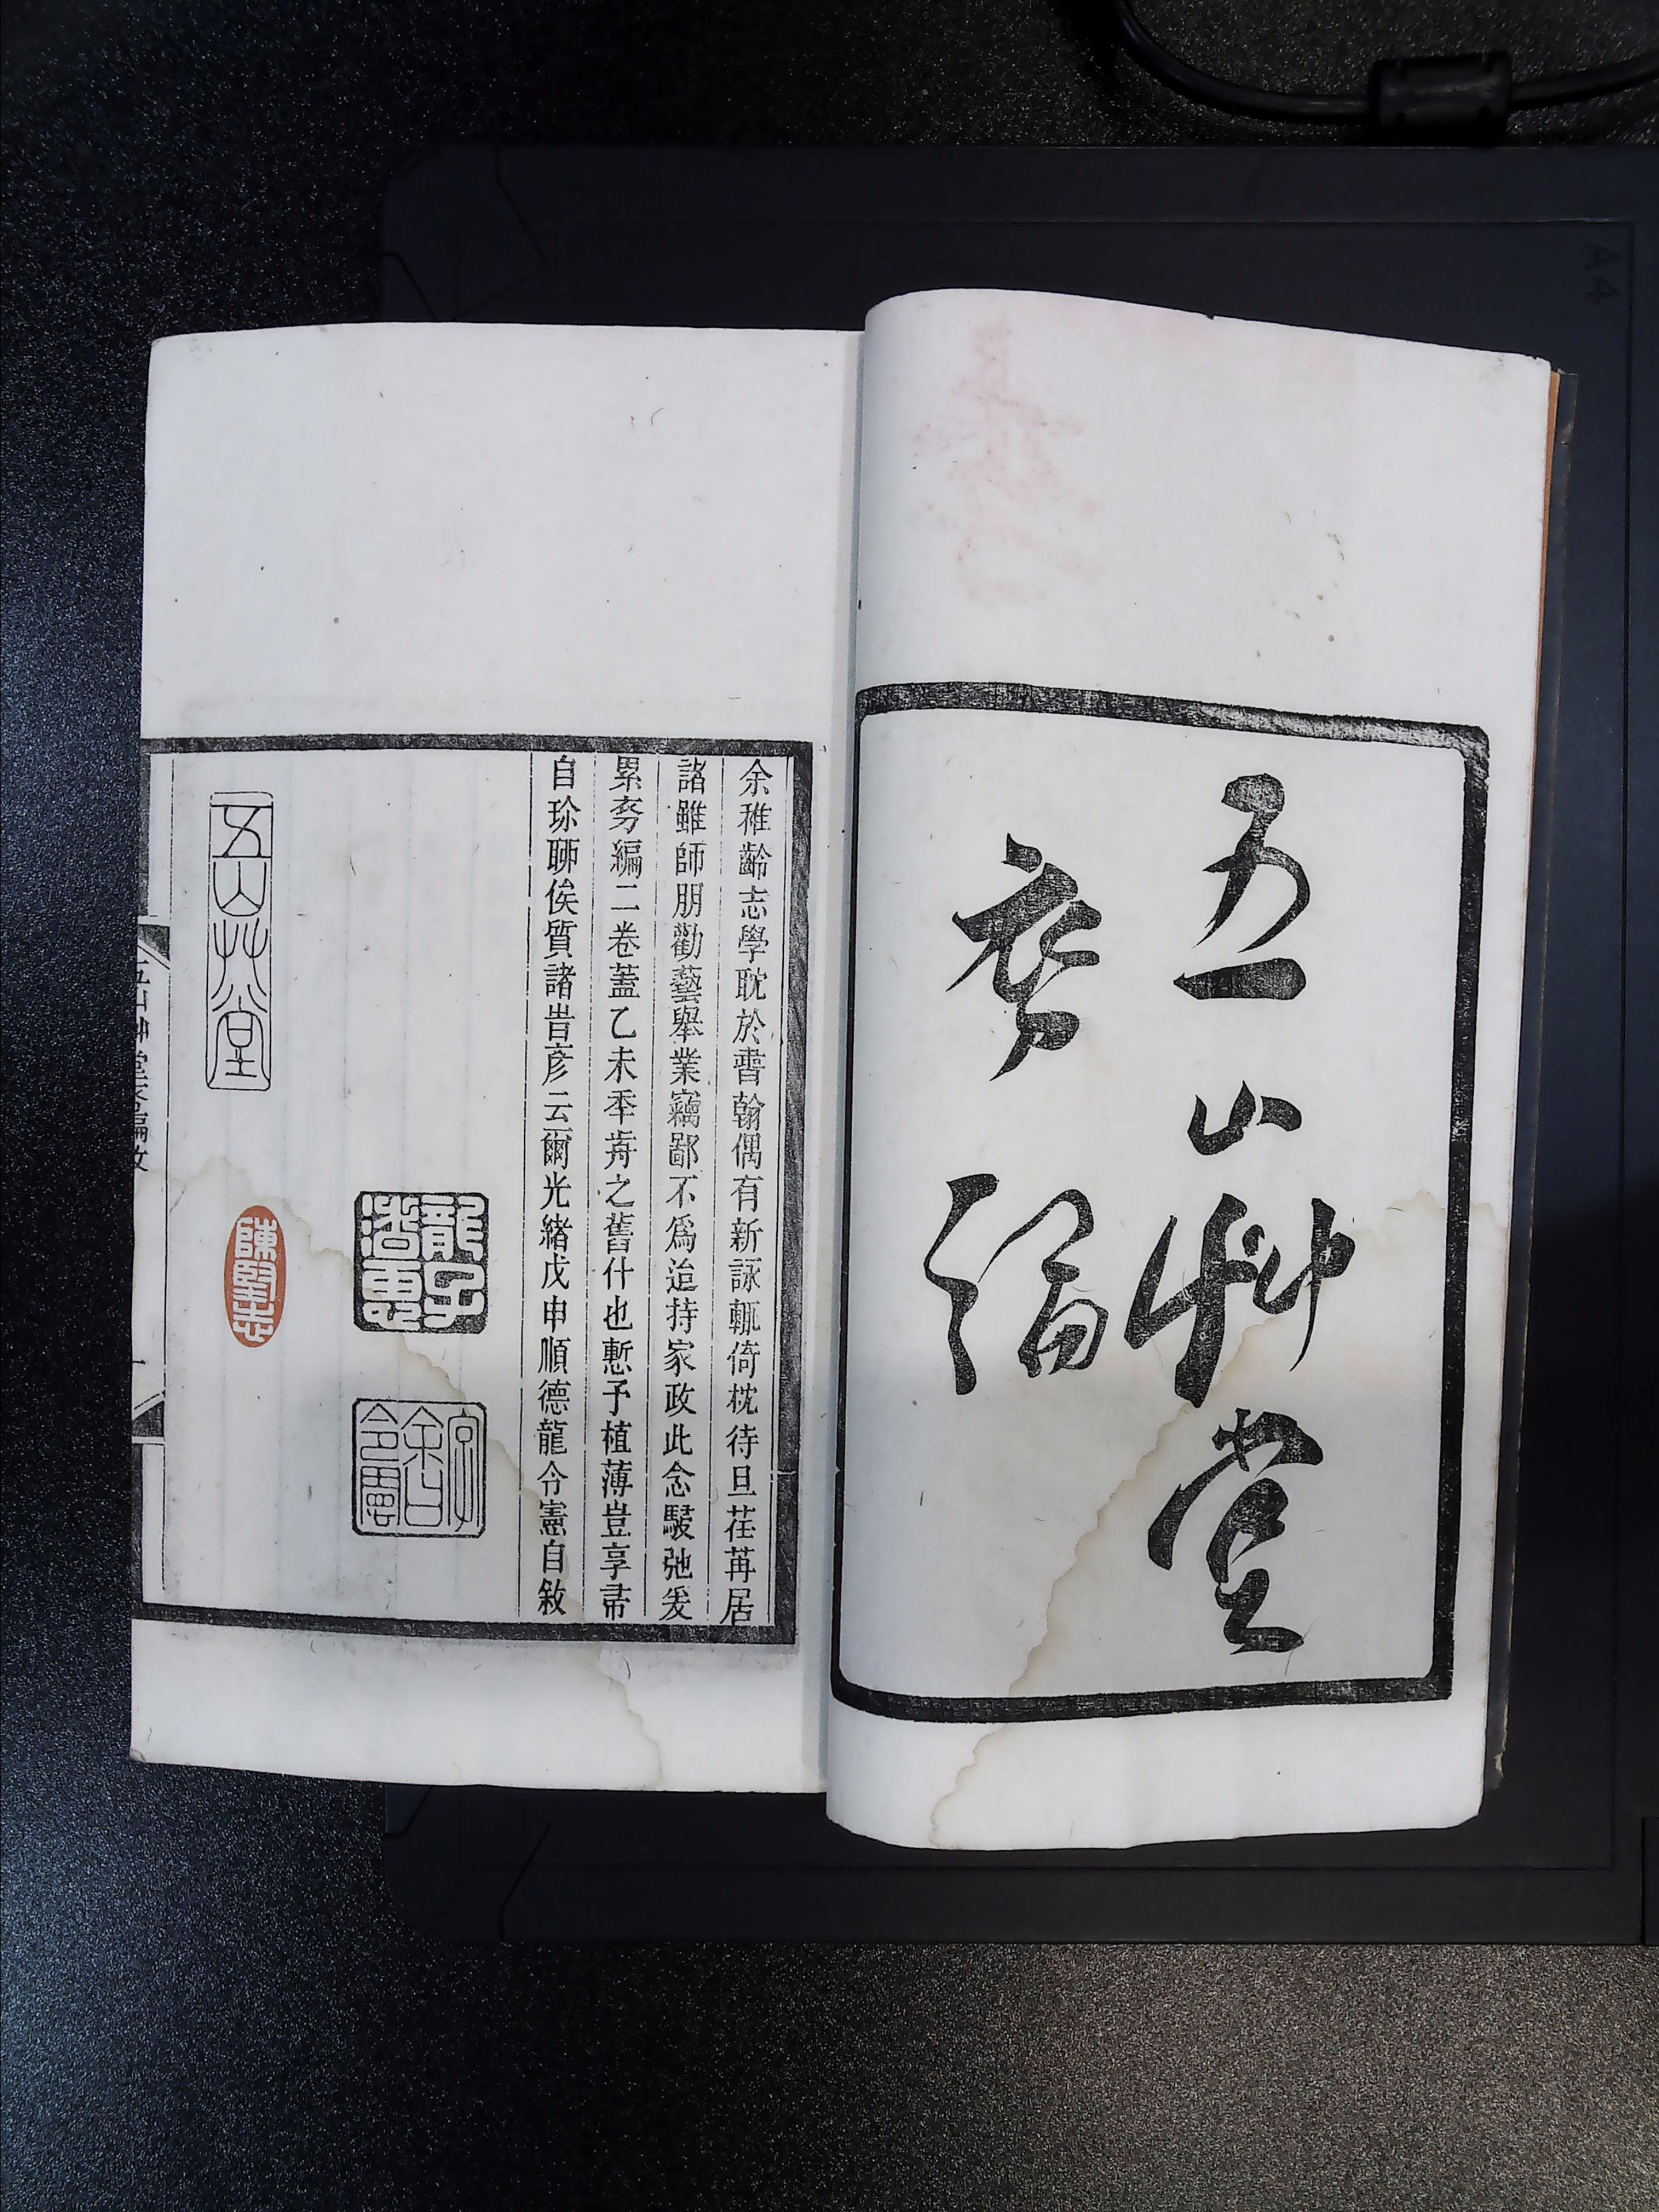 五山艸堂
夯編
余稚齡志學耽於書翰偶有新詠輒倚枕待旦荏苒居
諸雖師朋勸藝舉業竊鄙不爲迨持家政此念騣弛爰
累夯編二卷蓋乙未秊歬之舊什也慙予植薄豈享帚
自珍聊俟質諸旹彦云爾光緒戊申順德龍令憲自敘
龍
字伯鑾令憲
五山艸堂
陳堅志
五山艸堂夯編敘
一
A4